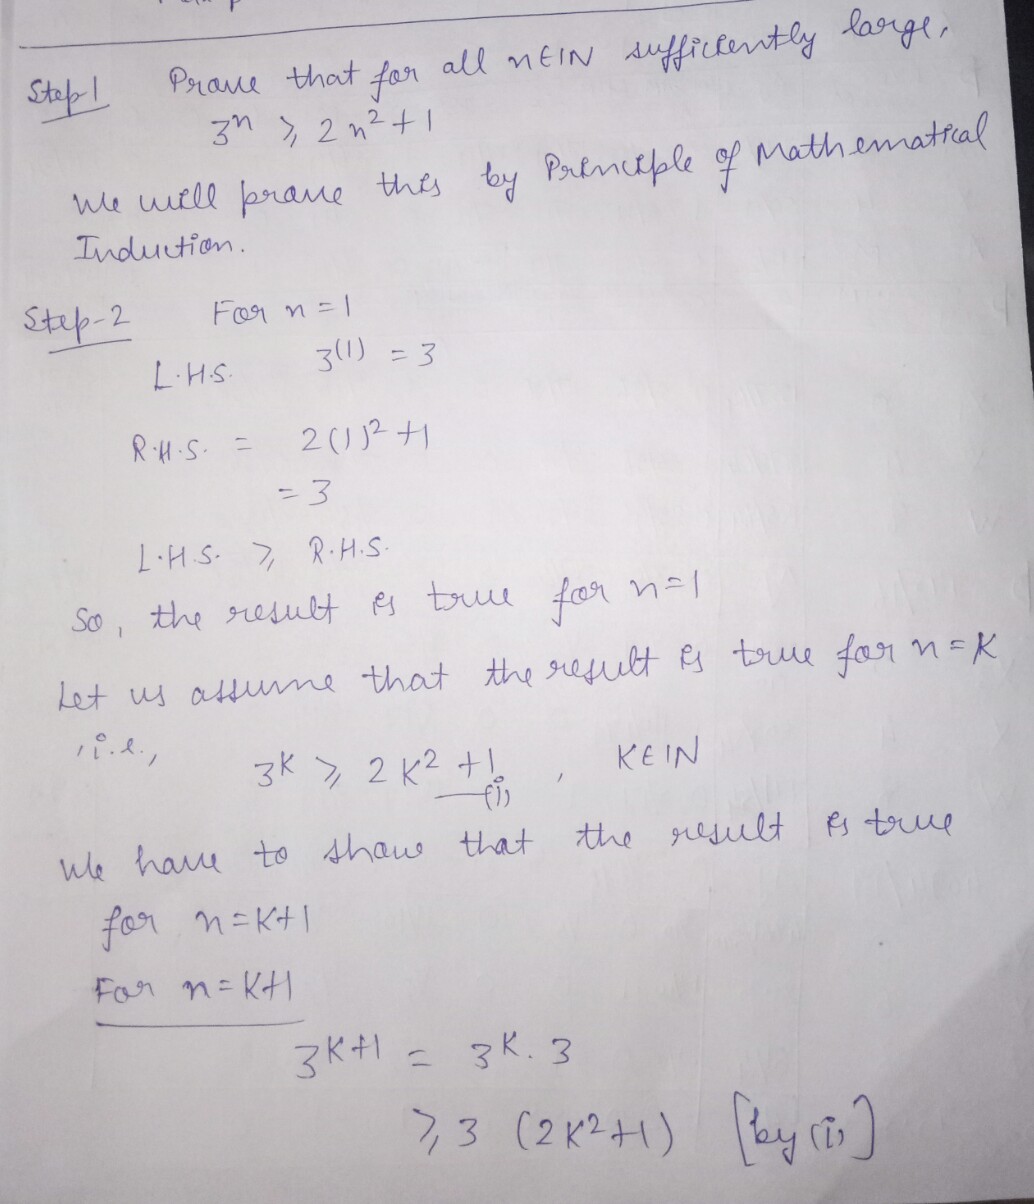 Step-1 Prove that for all n∈IN sufficiently large,
3ⁿ ≥ 2n² + 1
We will prove this by Principle of Mathematical
Induction.
Step-2 For n = 1
L.H.S. 3⁽¹⁾ = 3
R.H.S. = 2(1)² + 1
= 3
L.H.S. ≥ R.H.S.
So, the result is true for n=1
Let us assume that the result is true for n = K
, i.e., 3ᴷ ≥ 2K² + 1 , K∈IN
—(i)
We have to show that the result is true
for n=K+1
For n=K+1
3ᴷ⁺¹ = 3ᴷ. 3
≥ 3 (2K²+1) [by (i)]